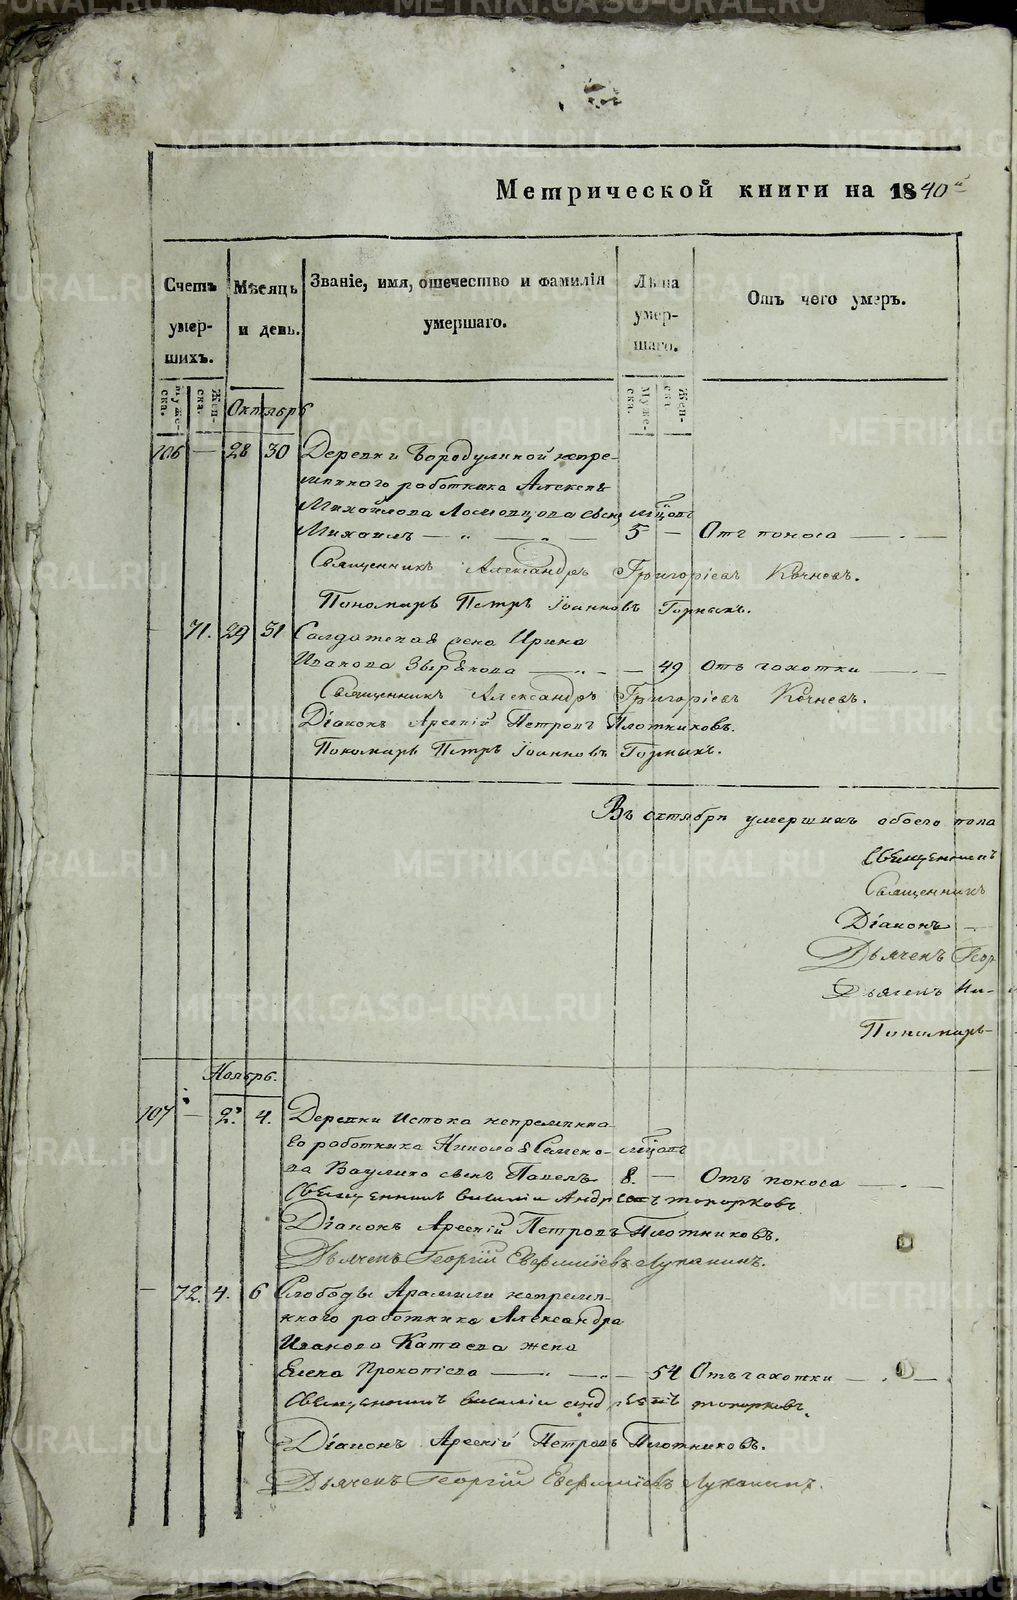 Метрической книги на 1840й
Счетъ умершихъ.
Муже-
ска.
Жен-
ска.
Мѣсяцъ и день.
Званіе, имя, отечество и фамилія
умершаго.
Лѣта
умер-
шаго.
Муже-
ска.
Жен-
ска.
Отъ чего умеръ.
Октябрь
106 — 28 30 Деревни Бородулиной непре-
мѣннаго работника Алексѣя
Михайлова сынъ мѣсяцъ
Михаилъ — " — " — 5 — Отъ поноса — " —
Священникъ Александръ Григоріевъ Кочневъ.
Пономарь Петръ Іоанновъ Горныхъ.
— 71. 29 31 Солдатская жена Ирина
Иванова Зырянова — " — — 49 Отъ чахотки — —
Священникъ Александръ Григоріевъ Кочневъ.
Діаконъ Арсеній Петровъ Плотниковъ.
Пономарь Петръ Іоанновъ Горныхъ.
Въ октябрѣ умершихъ обоего пола
Священникъ
Священникъ
Діаконъ —
Дьячекъ Геор
Дьячекъ Ни-
Пономарь
Ноябрь.
107 — 2. 4. Деревни Истока непремѣнна
го работника Николая Семено- мѣсяцъ
ва Ваулина сынъ Павелъ 8. — Отъ поноса — " —
Священникъ Василій Андреевъ Топорковъ.
Діаконъ Арсеній Петровъ Плотниковъ.
Дьячекъ Георгій Луканинъ.
— 72. 4. 6 Слободы Арамили непремѣ-
ннаго работника Александра
Иванова Катаева жена
Елена Прокопіева — " — " — 54 Отъ чахотки — " —
Священникъ Василій Андреевъ Топорковъ.
Діаконъ Арсеній Петровъ Плотниковъ.
Дьячекъ Георгій Луканинъ.
METRIKI.GASO-URAL.RU